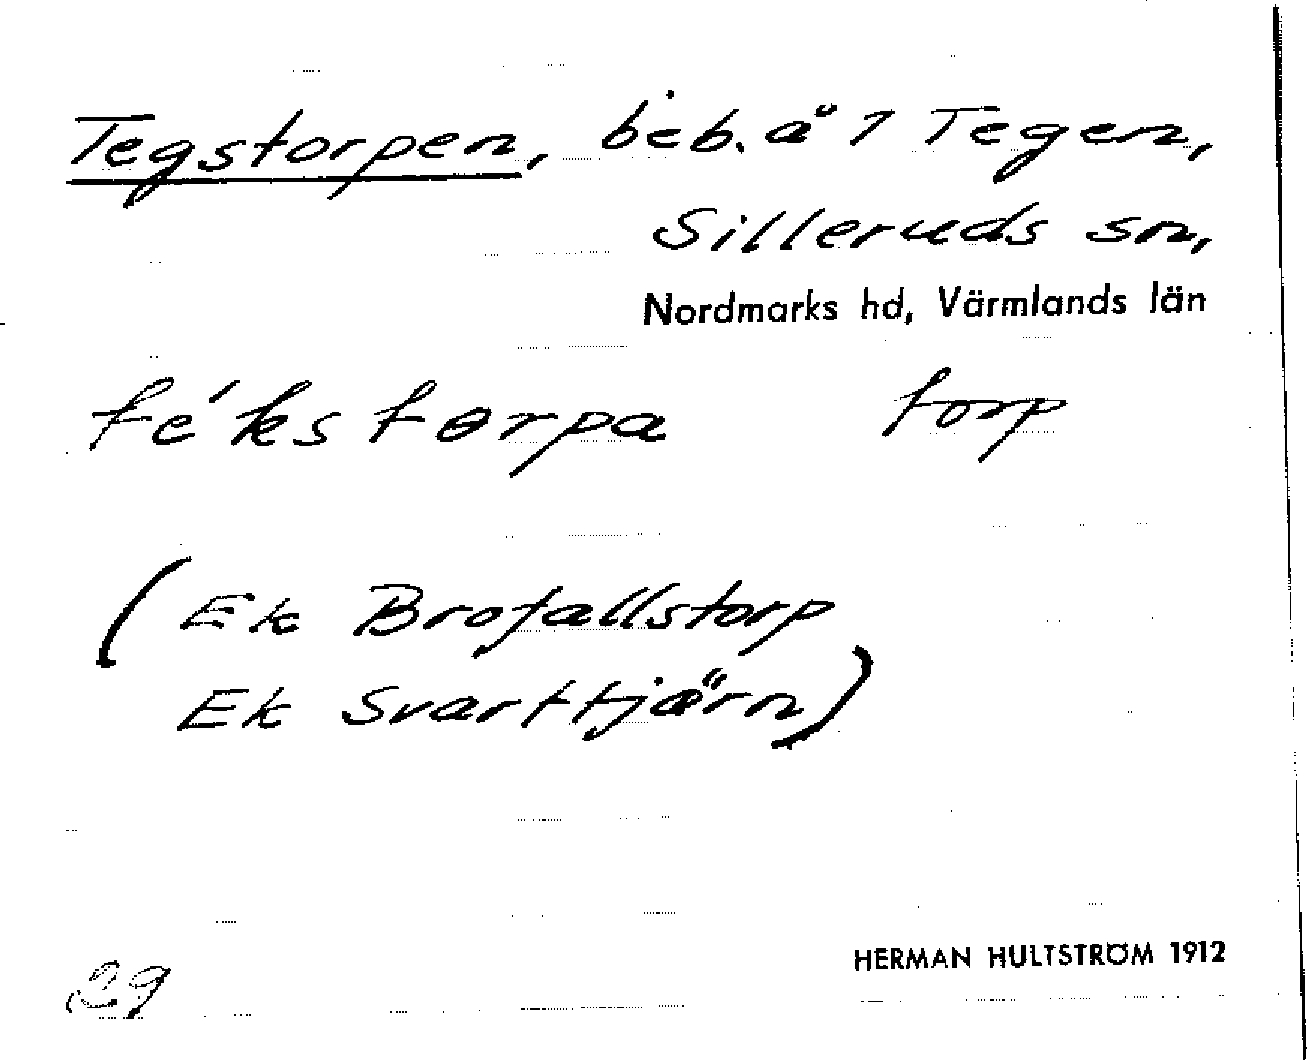 Tegstorpen, beb. å 1 Tegen,
Silleruds sn,
Nordmarks hd, Värmlands län
té'kstɵrpa torp
(Ek Brofallstorp
Ek Svarttjärn)
HERMAN HULTSTRÖM 1912
29